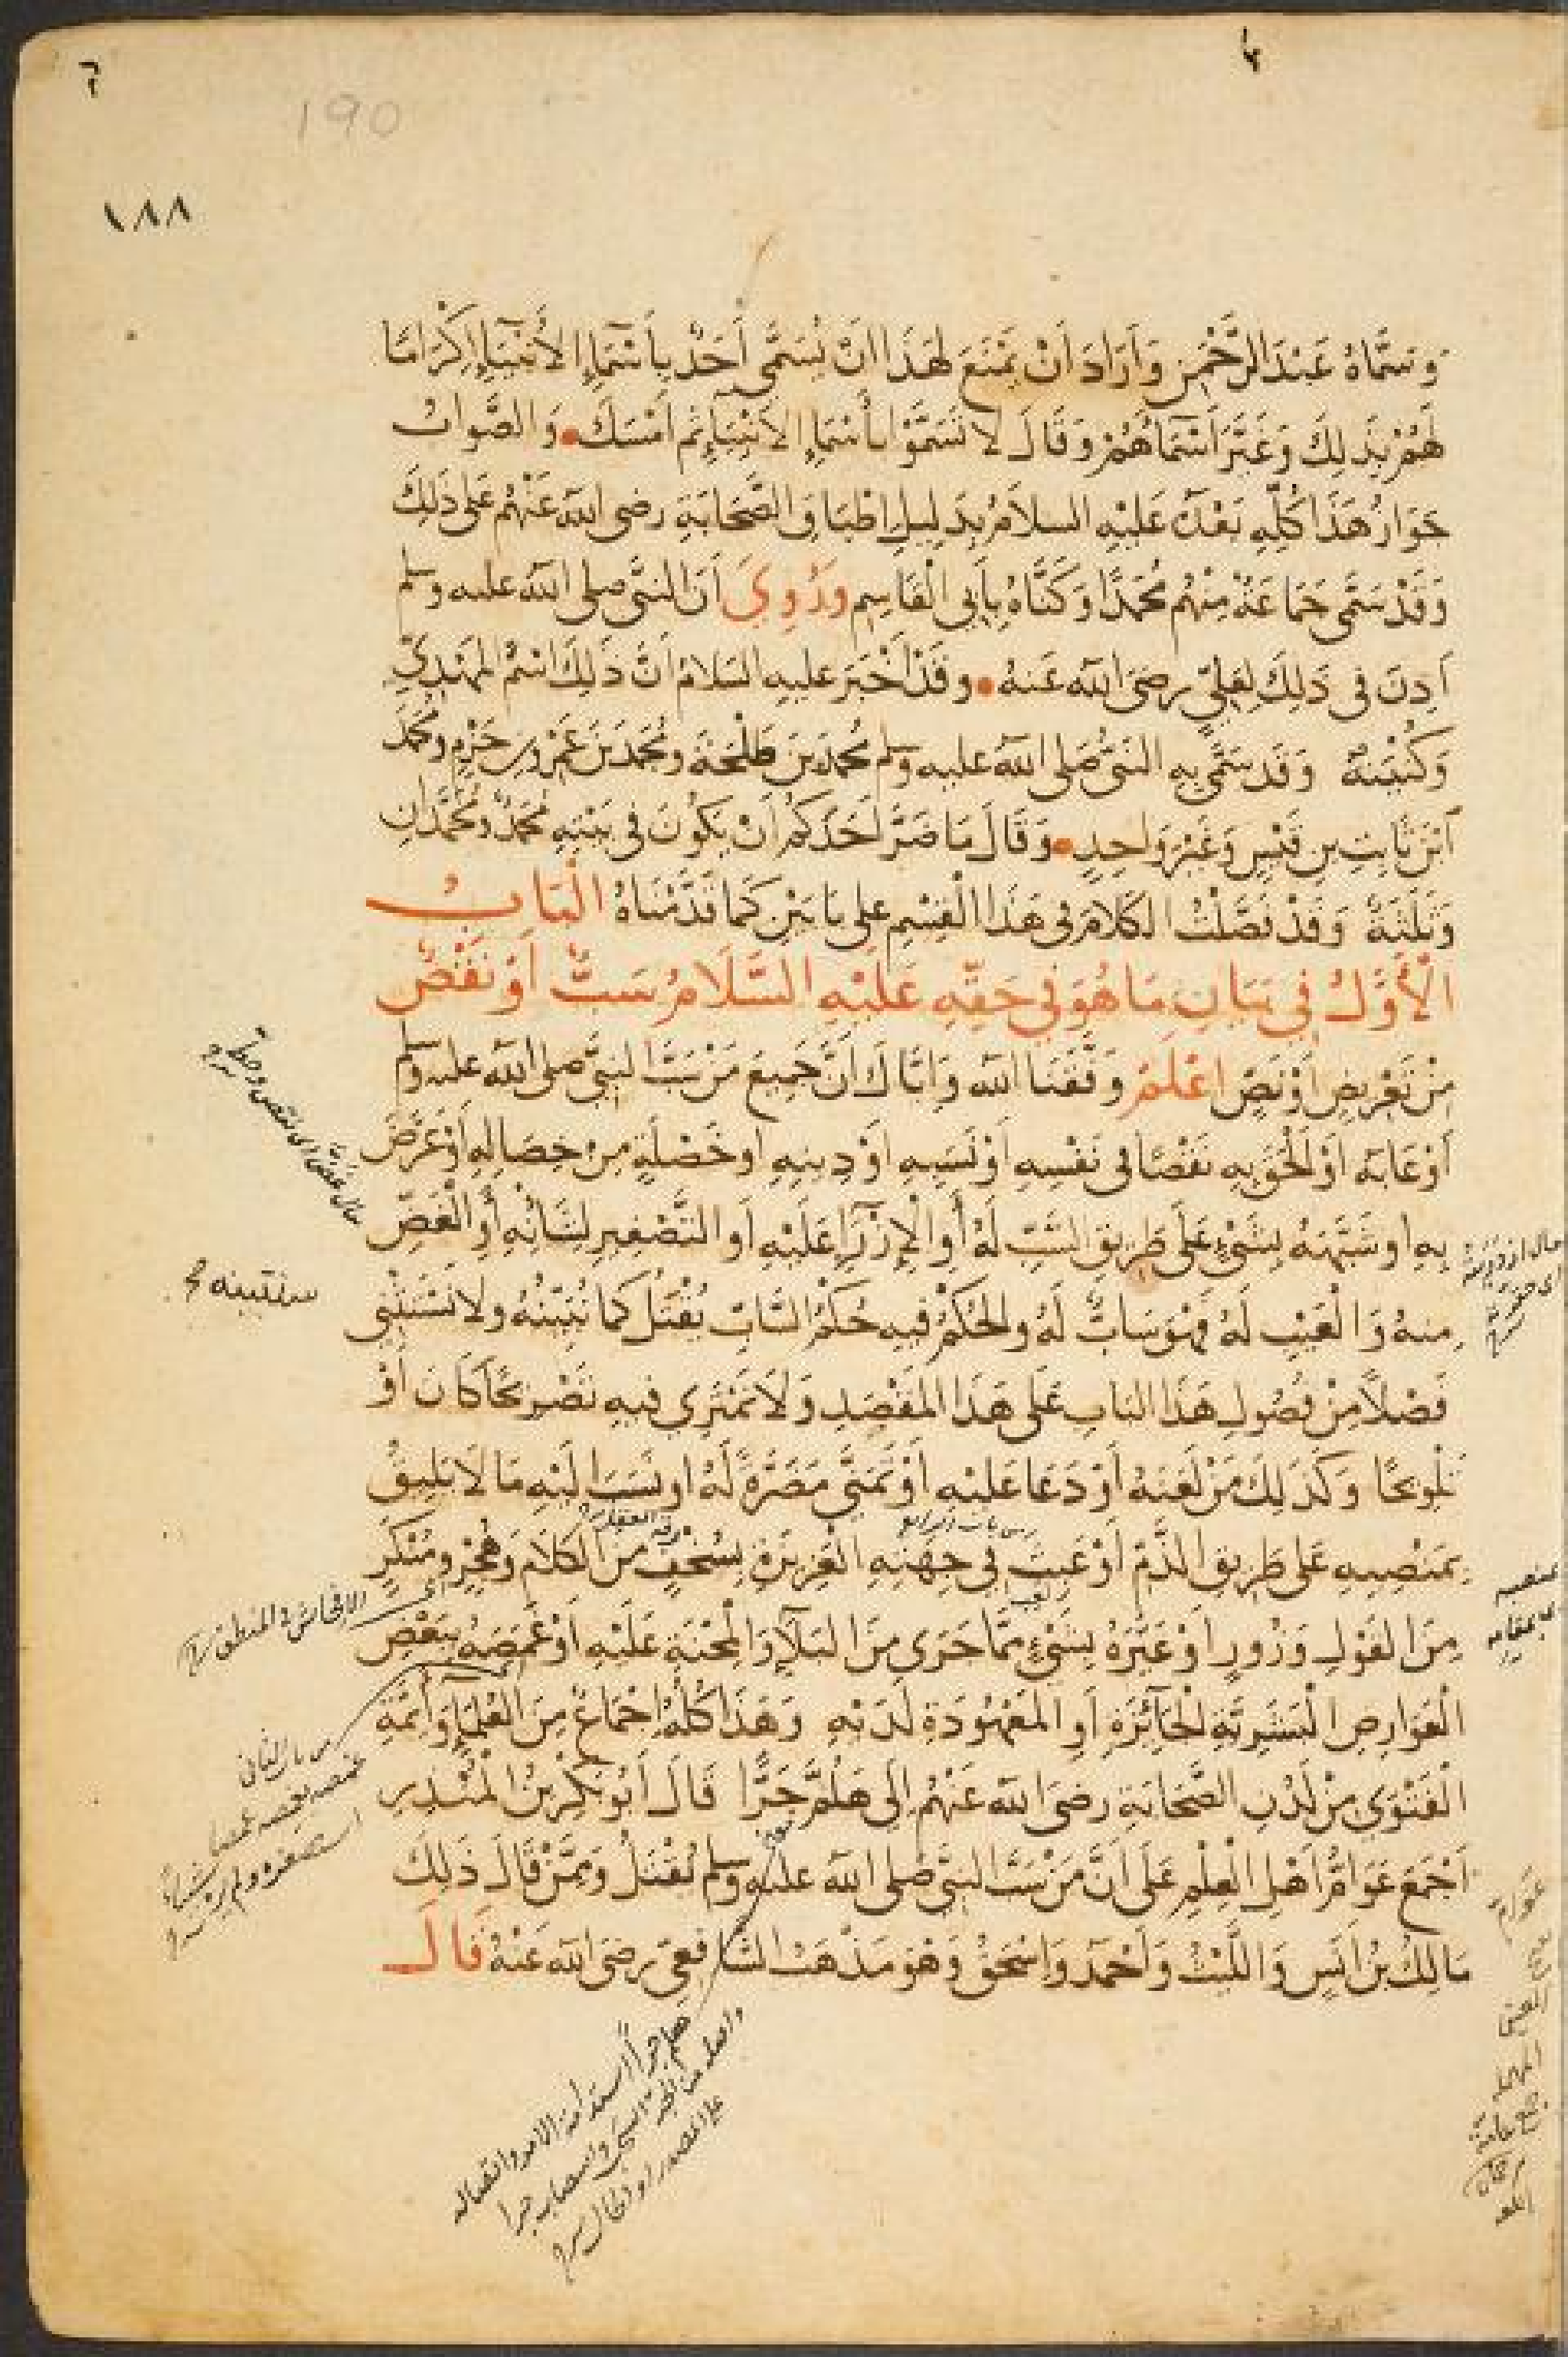 190
١٨٨
وَسَمَّاهُ عَبْدَ الرَّحْمٰنِ وَأَرَادَ أَنْ يَمْنَعَ لِهَذَا أَنْ يُسَمَّى أَحَدٌ بِأَسْمَاءِ الْأَنْبِيَاءِ إِكْرَامًا
لَهُمْ بِذَلِكَ وَغَيَّرَ أَسْمَاءَهُمْ وَقَالَ لَا تَسَمَّوْا بِأَسْمَاءِ الْأَنْبِيَاءِ ثُمَّ أَمْسَكَ وَالصَّوَابُ
جَوَازُ هَذَا كُلِّهِ بَعْدَهُ عَلَيْهِ السلاَمُ بِدَلِيلِ إِطْبَاقِ الصَّحَابَةِ رضى الله عَنْهُمْ عَلَى ذَلِكَ
وَقَدْ سَمَّى جَمَاعَةٌ مِنْهُمْ مُحَمَّدًا وَكَنَّاهُ بِأَبِي الْقَاسِمِ وَرُوِيَ أَنَّ النبَّى صلى الله عليه وسلم
أَذِنَ فى ذَلِكَ لِعَلِيٍّ رضىَ الله عَنهُ وقَدْ أَخْبَرَ عليه السَلامُ أَنَّ ذَلِكَ اسْمُ الْمَهْدِيِّ
وَكُنْيَتُهُ وَقَد سَمَّى بِهِ النَّبىُّ صَلى اللهُ عليه وسلم مُحمدَ بْنَ طَلْحَةَ ومُحَمَدَ بْنَ عَمْرِو بنِ حَزْمٍ ومُحَمَّدَ
ابْنَ ثَابِتِ بنِ قَيْسٍ وَغَيْرَ وَاحِدٍ وَقَالَ مَا ضَرَّ أَحَدَكُمْ أَنْ يَكُونَ فى بَيْتِهِ مُحَمَّدٌ وَمُحَمَّدَانِ
وَثَلَثَةٌ وَقَدْ فَصَّلْتُ الكَلَامَ فى هَذَا الْقِسْمِ على بَابَيْنِ كَمَا قَدَّمْنَاهُ الْبَابُ
الْأَوَّلُ فِي بَيَانِ مَا هُوَ فِي حَقِّهِ عَلَيْهِ السَّلَامُ سَبٌّ أَوْ نَقْصٌ
مِنْ تَعْرِيضٍ أَوْ نَصٍّ اعْلَمْ وَفَّقَنَا الله وَإيَّاكَ أَنَّ جَمِيعَ مَنْ سَبَّ النبيَّ صلى الله عليه وسلم
أَوْ عَابَهُ أَوْ أَلْحَقَ بِهِ نَقْصًا فى نَفْسِهِ أَوْ نَسَبِهِ أَوْ دِينِهِ او خَصْلَةٍ مِنْ خِصَالِهِ أَوْ عَرَّضَ
بِهِ او شَبَّهَهُ بِشَىْءٍ عَلَى طَرِيقِ السَّبِّ لَهُ أَوِ الْإِزْرَاءِ عَلَيْهِ أَوِ التَّصْغِيرِ لِشَأْنِهِ أَوِ الْغَضِّ
مِنهُ وَالْعَيْبِ لَهُ فَهُوَ سَابٌّ لَهُ والحُكْمُ فِيهِ حُكْمُ السَّابِّ يُقْتَلُ كَمَا نُبَيِّنُهُ ولا نَسْتَثْنِي
فَصْلاً مِنْ فُصُولِ هَذَا البَابِ عَلَى هَذَا الْمَقْصِدِ وَلَا نَمْتَرِي فِيهِ تَصْرِيحًا كَانَ أَوْ
تَلْوِيحًا وَكَذَلِكَ مَنْ لَعَنَهُ أَوْ دَعَا عَلَيْهِ أَوْ تَمَنَّى مَضَرَّةً لَهُ او نَسَبَ إِلَيْهِ مَا لَا يَلِيقُ
بِمَنْصِبِهِ عَلى طَرِيقِ الذَّمِّ أَوْ عَبِثَ فِي جِهَتِهِ الْعَزِيزَةِ بِسُخْفٍ مِنَ الْكَلَامِ وَهُجْرٍ وَمُنْكَرٍ
مِنَ القَوْلِ وَزُورٍ أَوْ عَيَّرَهُ بِشَىْءٍ مِمَّا جَرَى مِنَ الْبَلَاءِ وَالْمِحْنَةِ عَلَيْهِ أَوْ غَمَصَهُ بِبَعْضِ
الْعَوَارِضِ الْبَشَرِيَّةِ الْجَائِزَةِ أَوِ الْمَعْهُودَةِ لَدَيْهِ وَهَذَا كُلُّهُ إِجْمَاعٌ مِنَ الْعُلَمَاءِ وَأَئِمَّةِ
الْفَتْوَى مِنْ لَدُنِ الصَّحَابَةِ رضىَ الله عَنْهُمْ إِلَى هَلُمَّ جَرًّا قَالَ أَبُو بَكْرِ بْنُ الْمُنْذِرِ
أَجْمَعَ عَوَامُّ أَهْلِ الْعِلْمِ عَلَى أَنَّ مَنْ سَبَّ النبيَّ صلى الله عليه وسلم يُقْتَلُ وَمِمَّنْ قَالَ ذَلِكَ
مَالِكُ بْنُ أَنَسٍ وَاللَّيْثُ وَأَحْمَدُ وَإِسْحَقُ وَهْوَ مَذْهَبُ الشَّافِعِىِّ رضىَ الله عَنْهُ قَالَ
سنبينه
الافحاش فى المنطق
من باب الثانى
عوامّ
هلم جراً استدامة الامر واتصاله